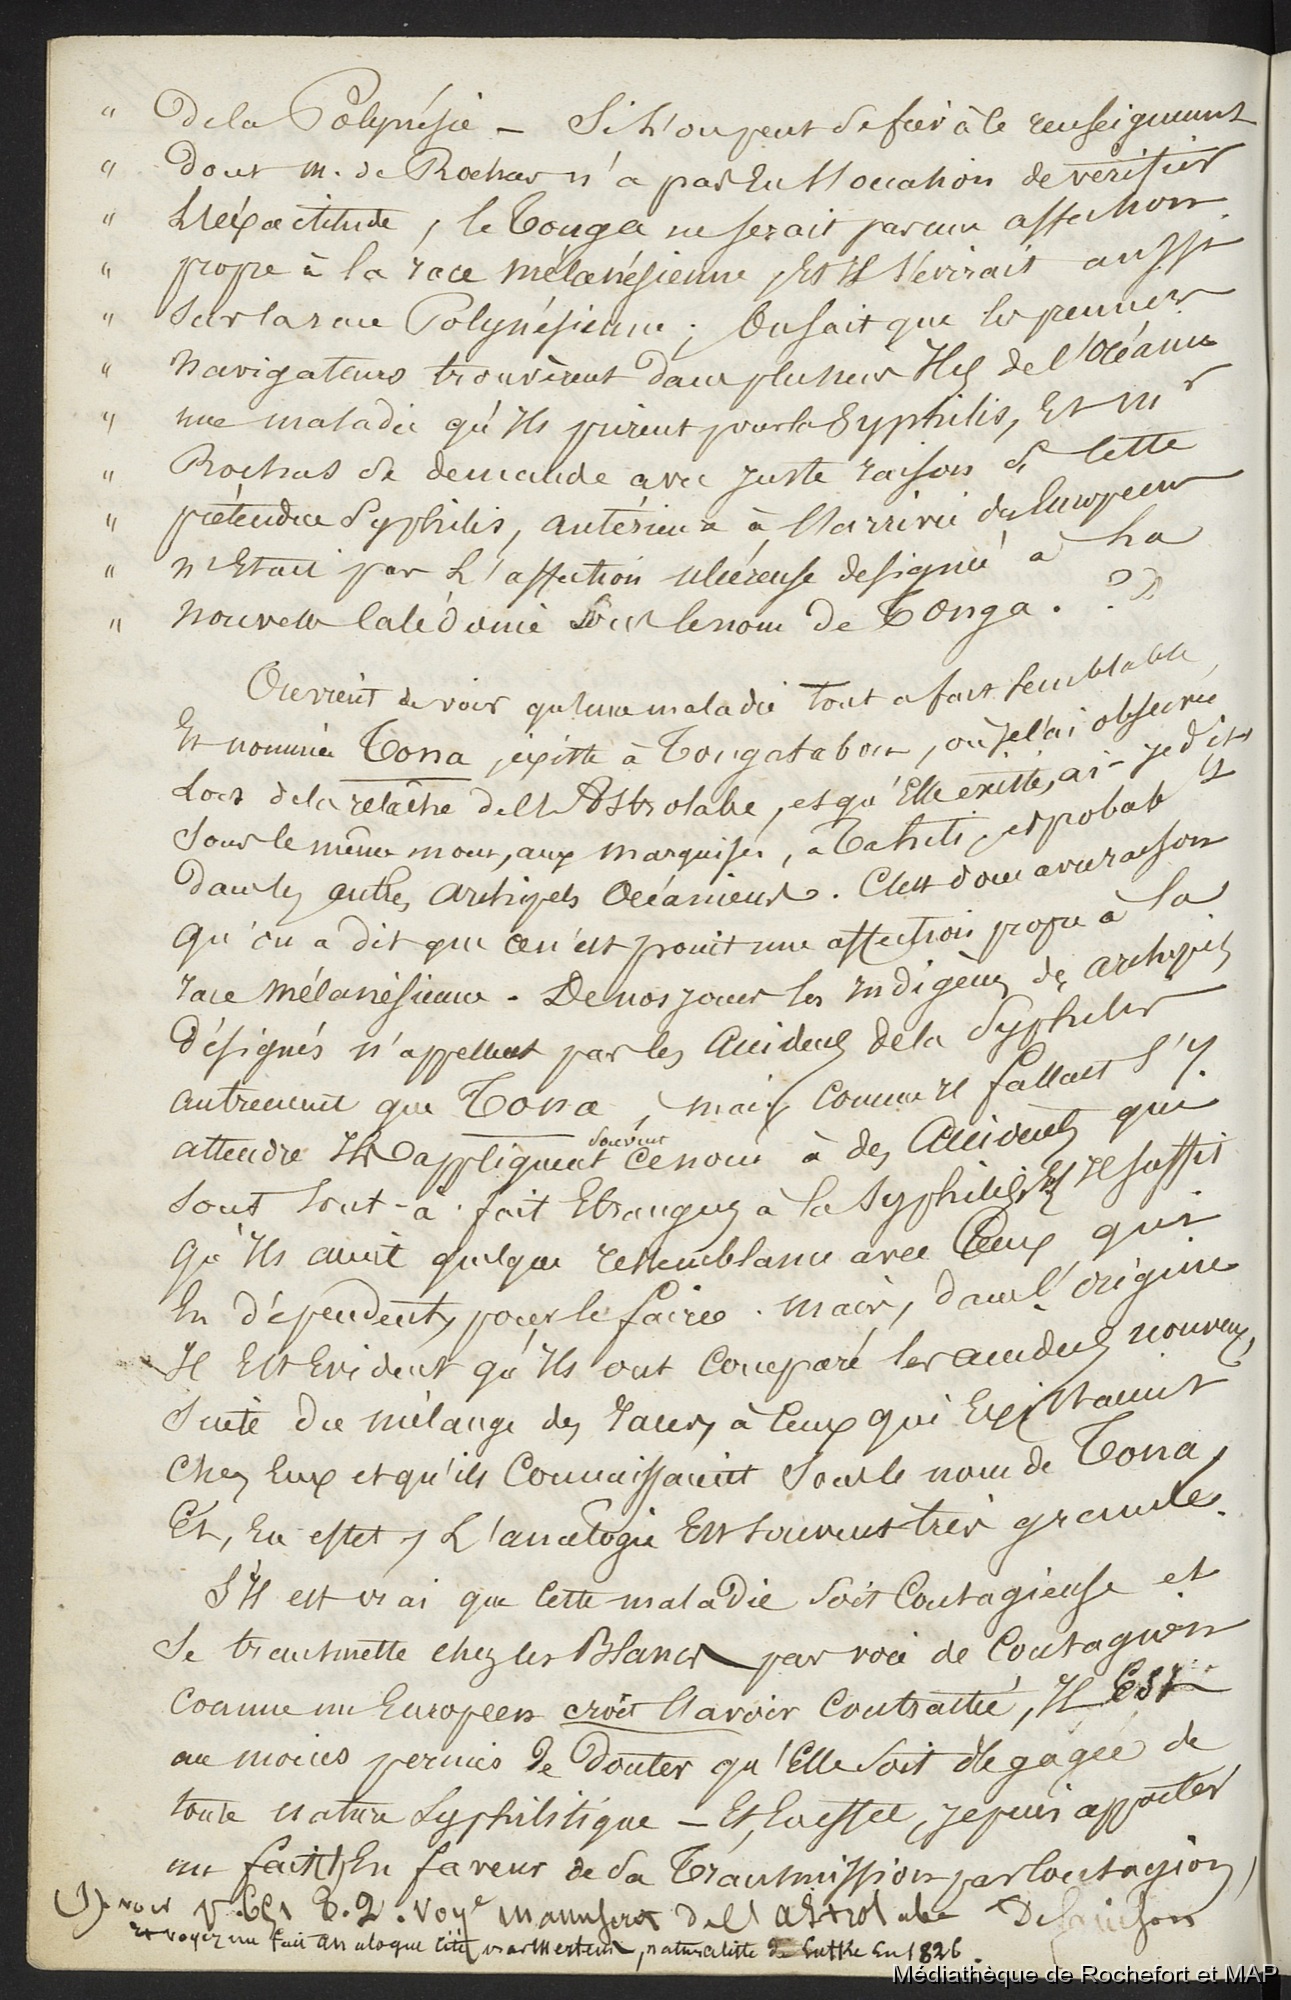 " De la Polynésie – Si l'on peut se fier à ce renseignement
" dont m. de Rochas n'a pas Eu l'occasion de vérifier
" L'éxactitude, le Tonga ne serait pas une affection
" propre à la race mélanésienne, Et Il sévirait aussi
" sur la race Polynésienne ; On sait que les premiers
" navigateurs trouvèrent dans plusieurs Iles de l'Océanie
" une maladie qu'Ils prirent pour la Syphilis, Et Mr
" Rochas se demande avec juste raison si cette
" prétendue Syphilis, antérieure à l'arrivée des Européens
" n'Etait pas L'affection ulcéreuse designée à la
" nouvelle Calédonie sous le nom de Tonga . ? »
On vient de voir qu'une maladie tout a fait semblable,
Et nommée Tona, éxiste à Tongatabou, où je l'ai observée
Lors de la relâche de l'Astrolabe, et qu'Elle existe, ai-je dit
sous le même nom, aux marquises, à Tahiti, et probablt
dans les autres archipels Océaniens. C'est donc avec raison
qu'on a dit que ce n'est point une affection propre à la
race mélanésienne. De nos jours les indigènes des archipels
désignés n'appellent pas les accidents de la Syphilis
autrement que Tona, mais, comme Il fallait s'y
attendre Ils appliquent souvent ce nom à des accidents qui
sont tout-à-fait Etrangers à la Syphilis, Et Il suffit
qu'Ils aient quelque ressemblance avec Ceux qui
En dépendent, pour le faire. mais, dans l'origine
Il Est Evident qu'Ils ont Comparé les accidents nouveaux,
suite du mélange des races, à Ceux qui Existaient
chez Eux et qu'ils Connaissaient sous le nom de Tona,
Et, En effet, L'analogie Est souvent très grande.
S'Il est vrai que Cette maladie soit Contagieuse et
se transmette chez les Blancs par voie de Contagion
comme un Européen croit l'avoir Contractée, Il Est
au moins permis de douter qu'Elle soit dégagée de
toute nature Syphilitique – Et, En effet, je puis apporter
un fait (1) En faveur de sa Transmission par Contagion,
(1). voir T. 2. voye manuscrit de l'astrolabe
et voyez un fait analogue Cité par Mertens, naturaliste de Lutke En 1826.
Médiathèque de Rochefort et MAP